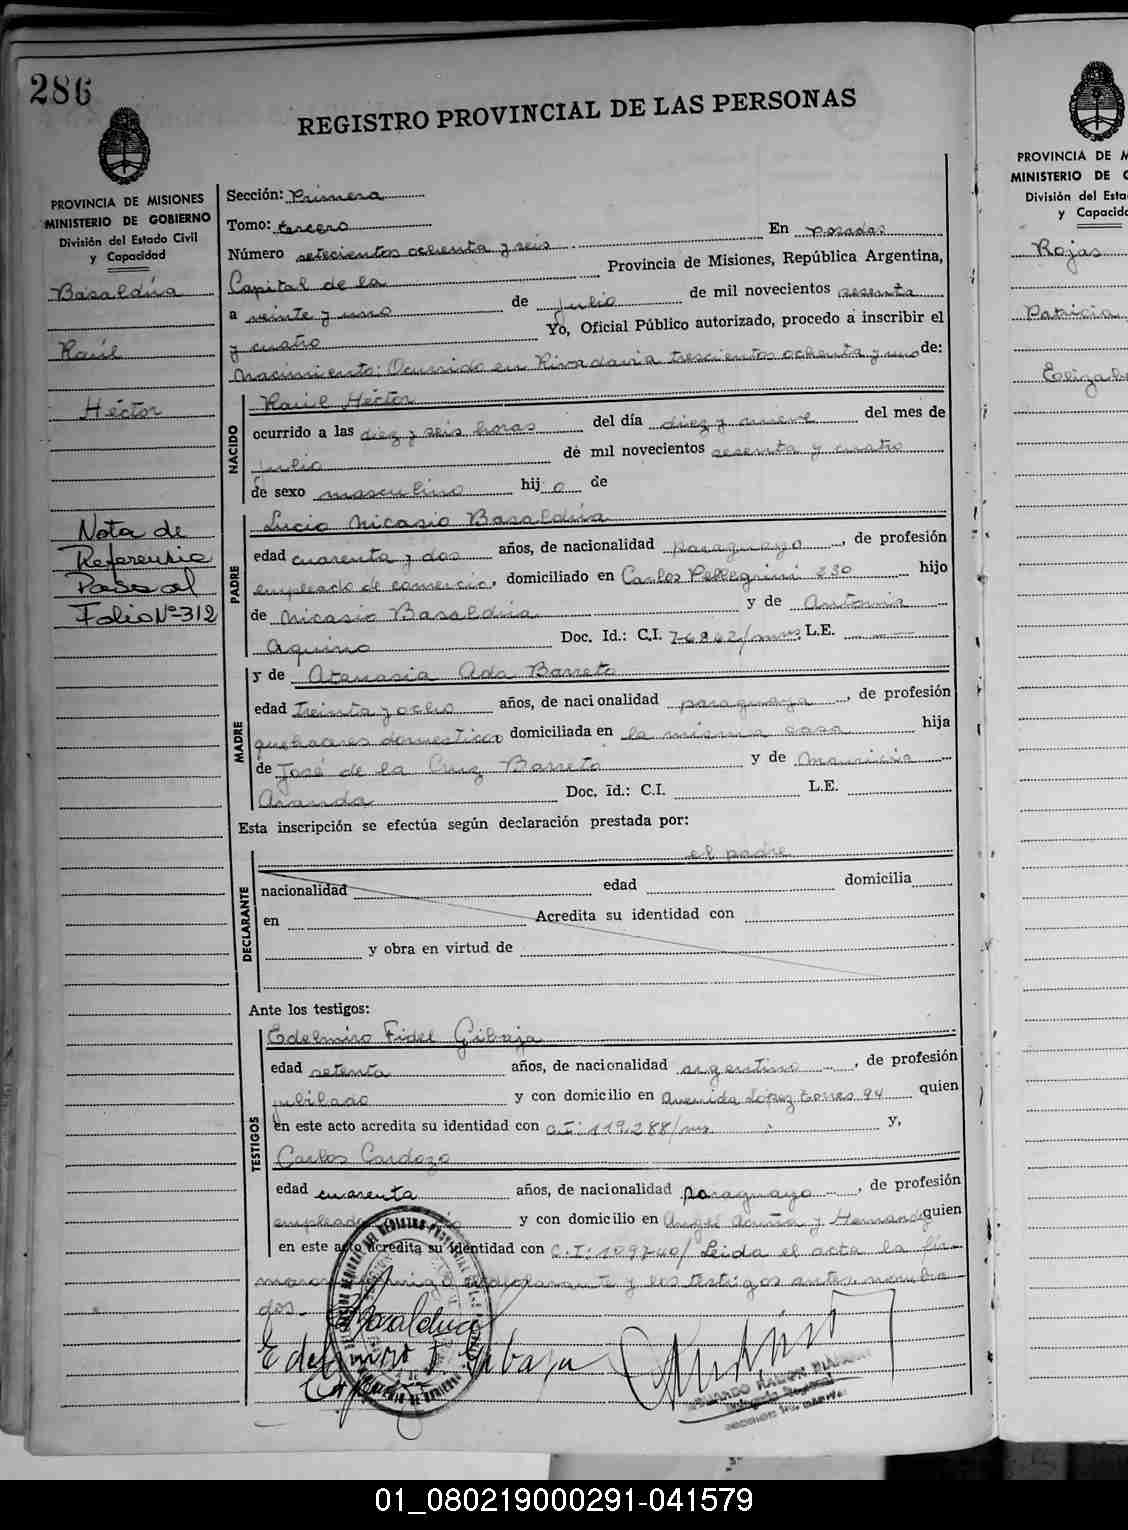 286
REGISTRO PROVINCIAL DE LAS PERSONAS
PROVINCIA DE MISIONES
MINISTERIO DE GOBIERNO
División del Estado Civil
y Capacidad
Basaldúa
Raúl
Héctor
Nota de
Referencia
Pasa al
Folio Nº 312
Sección: Primera
Tomo: tercero
Número setecientos ochenta y seis En Posadas
Capital de la Provincia de Misiones, República Argentina,
a veinte y uno de julio de mil novecientos sesenta
y cuatro Yo, Oficial Público autorizado, procedo a inscribir el
Nacimiento: Ocurrido en Rivadavia trescientos ochenta y uno de:
NACIDO
Raúl Héctor
ocurrido a las diez y seis horas del día diez y nueve del mes de
julio de mil novecientos sesenta y cuatro
de sexo masculino hijo de
PADRE
Lucio Nicasio Basaldúa
edad cuarenta y dos años, de nacionalidad paraguayo, de profesión
empleado de comercio, domiciliado en Carlos Pellegrini 230 hijo
de Nicasio Basaldúa y de Antonia
Aquino Doc. Id.: C.I. L.E.
MADRE
y de Atanasia Ada Barreto
edad treinta y ocho años, de nacionalidad paraguaya, de profesión
quehaceres domesticos domiciliada en la misma casa hija
de José de la Cruz Barreto y de Mauricia
Aranda Doc. Id.: C.I. L.E.
Esta inscripción se efectúa según declaración prestada por:
DECLARANTE
el padre
nacionalidad edad domicilia
en Acredita su identidad con
y obra en virtud de
Ante los testigos:
TESTIGOS
Edelmiro Fidel Gibaja
edad setenta años, de nacionalidad argentino, de profesión
jubilado y con domicilio en Avenida López Torres 94 quien
en este acto acredita su identidad con C.I: 119.288/ms y,
Carlos Cardozo
edad cuarenta años, de nacionalidad paraguayo, de profesión
empleado y con domicilio en Angel Acuña y quien
en este acto acredita su identidad con C.I: 109740/ Leida el acta la fir-
maron el declarante y los testigos antes nombra-
dos.
Basaldúa
Edelmiro F. Gibaja
PROVINCIA DE M
MINISTERIO DE G
División del Esta
y Capacid
Rojas
Patricia
Elizabe
01_080219000291-041579